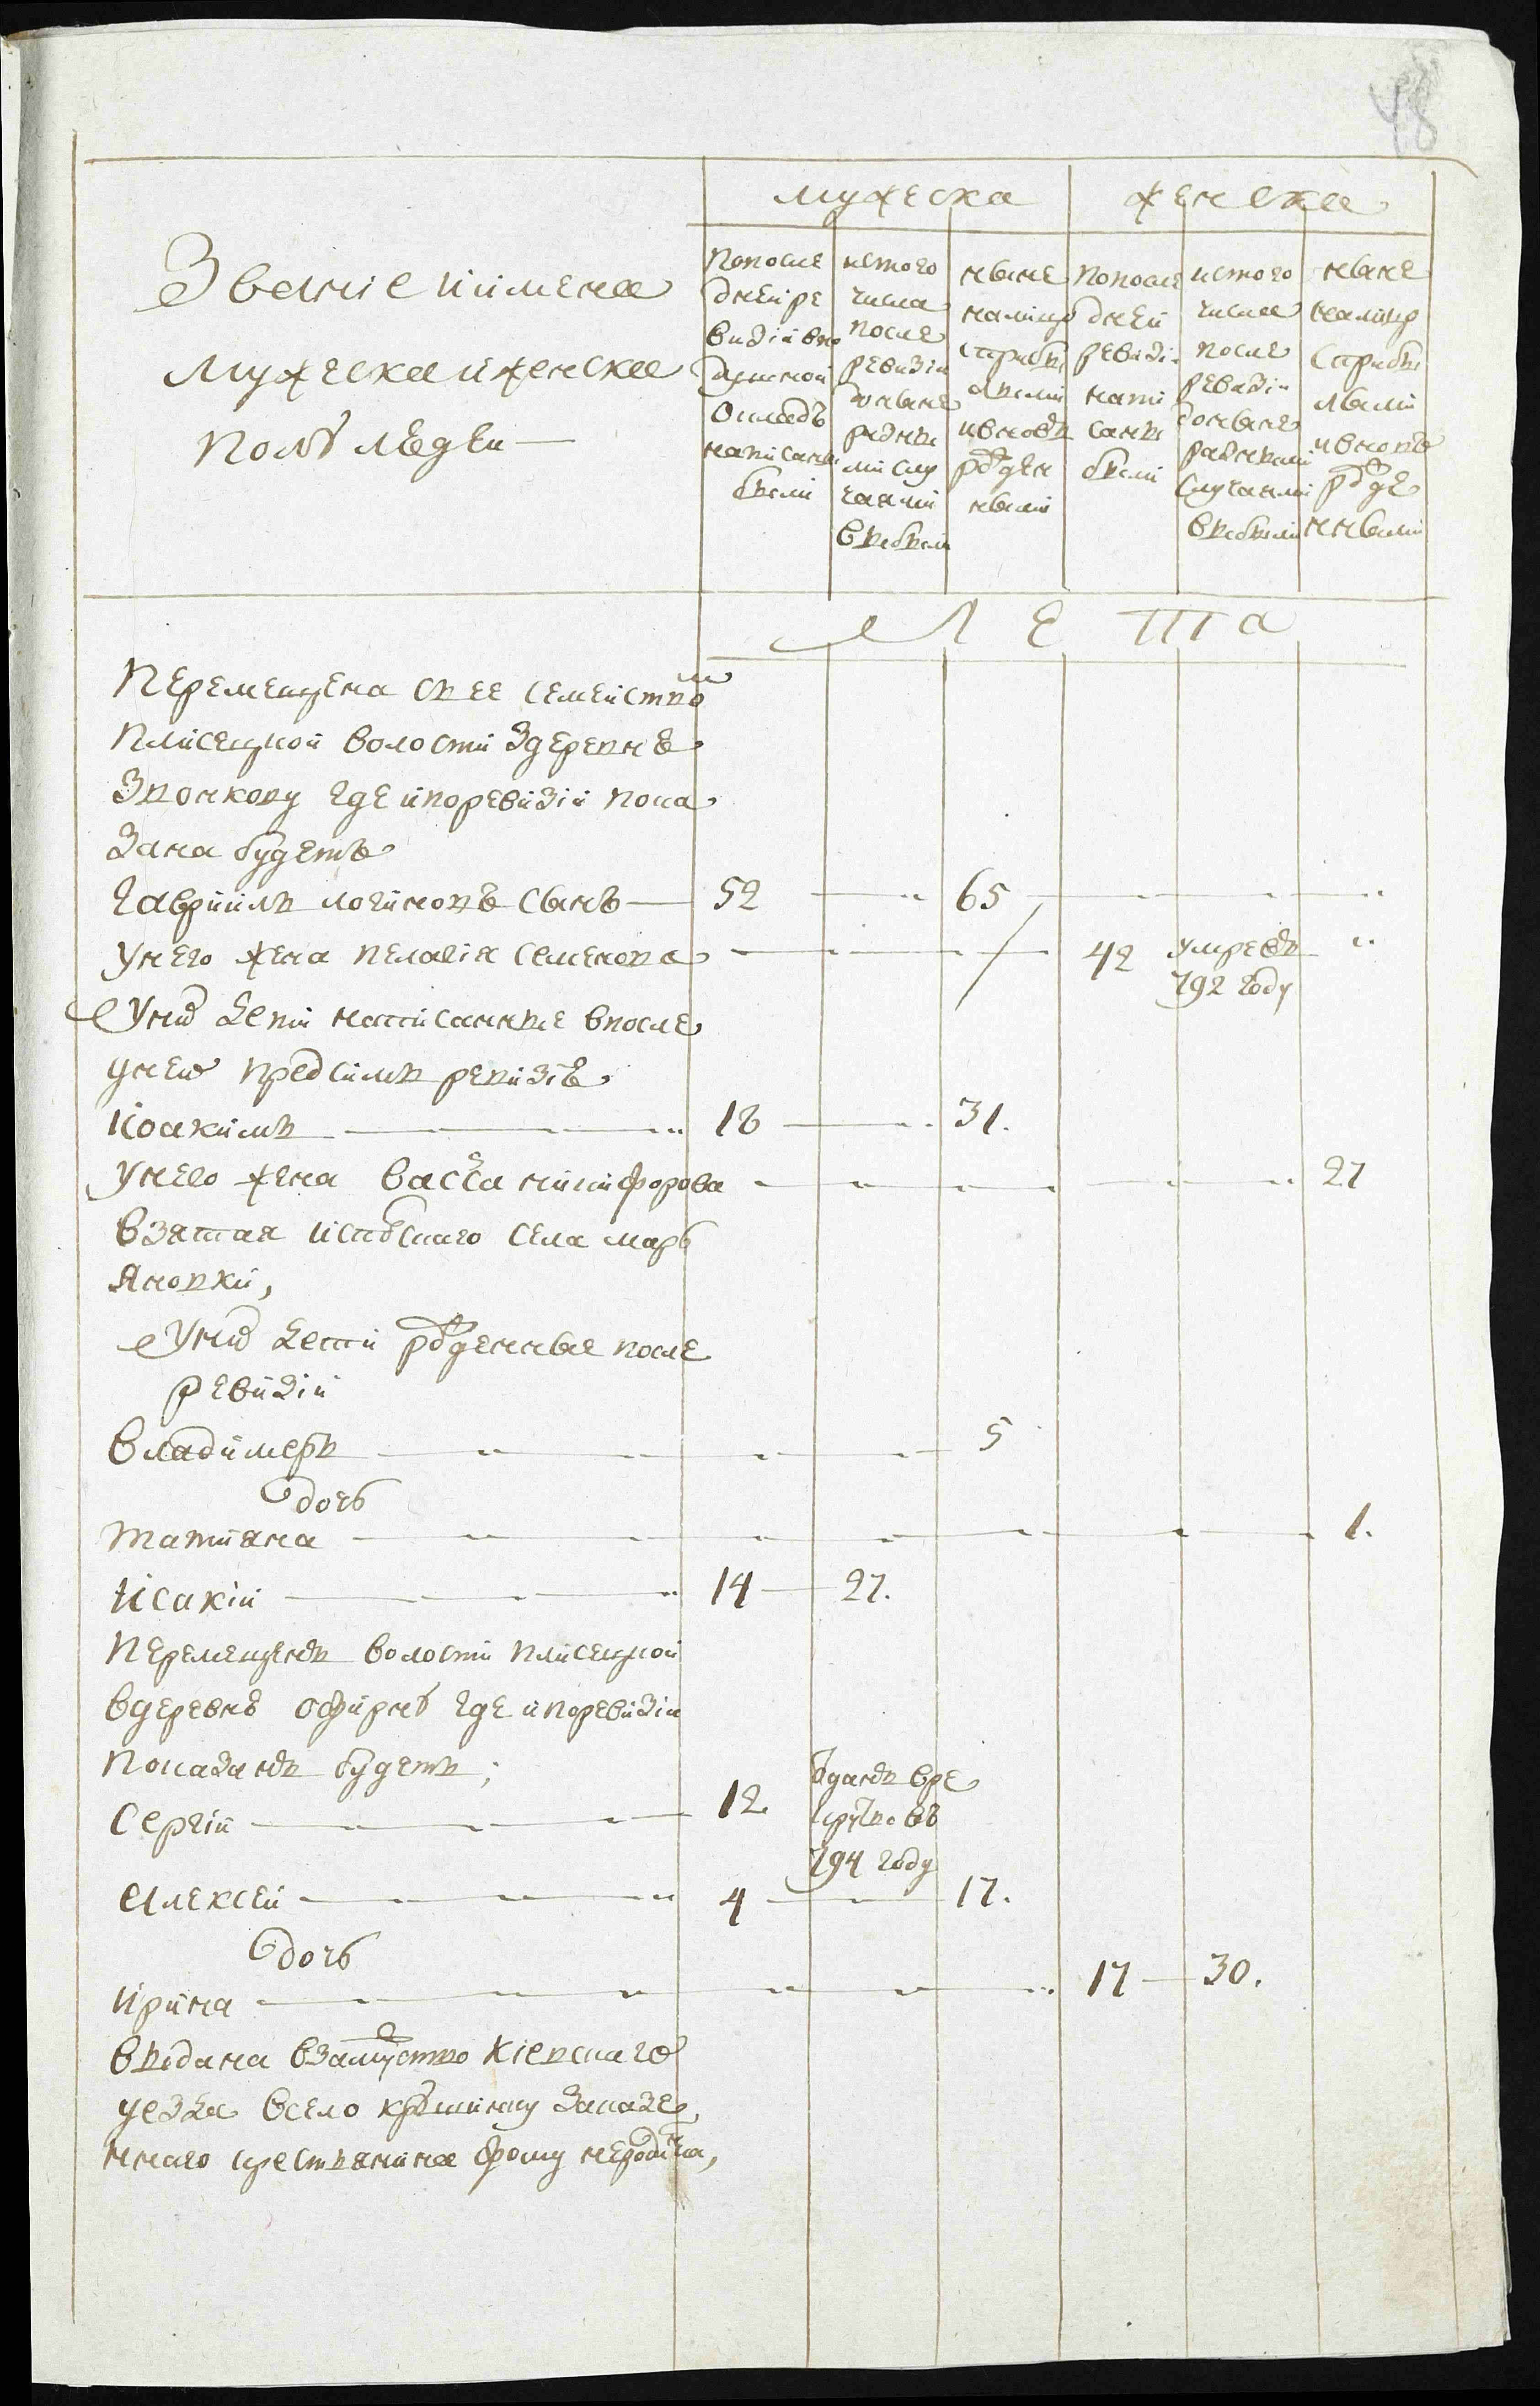 48
мужеска
женска
Званіе и имена
мужеска и женска
полу людей —
по после
дней ре
визіи в по
душной
окладъ
написаны
были
ис того
числа
после
ревизіи
до ныне
разны
ми слу
чаями
выбыли
ныне
на лицо
с прибы
лыми
и вновь
рожден
ными
по после
дней
ревизіи
напи
саны
были
ис того
числа
после
ревизіи
до ныне
разными
случаями
выбыли
ныне
на лицо
с прибы
лыми
и вновь
рожде
нными
Лета
Перемещена въ ее семейством
Плисецкой волости в деревнѣ
Звонкову где и по ревизіи пока
зана будетъ
Гавріилъ логиновъ сынъ — 52 — 65
у него жена пелагія семенова — 42 умре въ
792 году
У них дети написанные в после
днею пред симъ ревизіѣ
Иоакимъ — 18 — 31.
у него жена васса никифорова — 27
взятая из того села марь
яновки,
У них дети рожденные после
ревизіи
Владимеръ — 5
дочь
татияна — 1.
Исакій — 14 — 27.
перемещенъ волости плисецкой
в деревнѣ офирнѣ где и по ревизіи
показанъ будетъ;
Сергій — 12 отданъ в ре
круты въ
794 году
Алексей — 4 — 17.
дочь
Ирина — 17 — 30.
выдана в замужство кіевскаго
уезда в село крюшинку заказе
ннаго крестянина фому неродича,